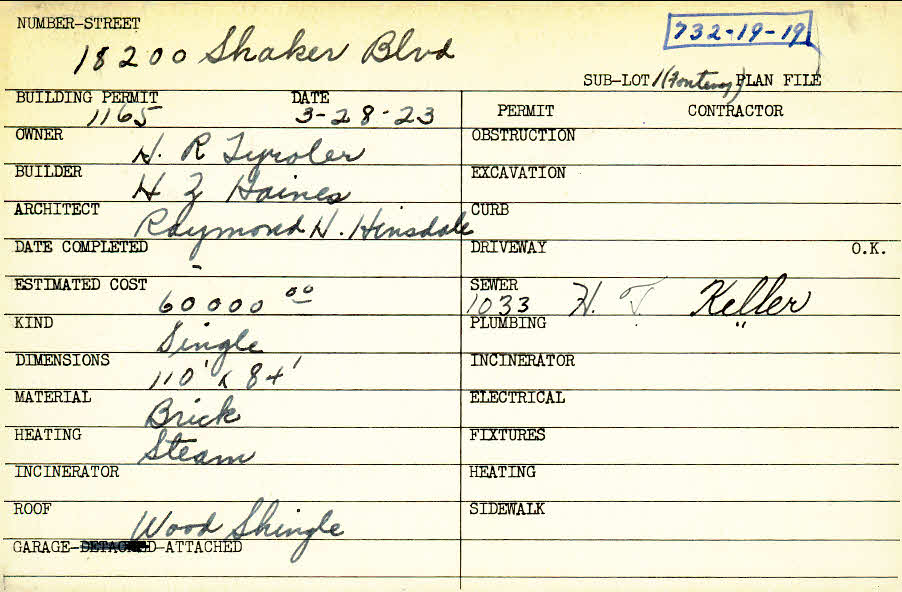 NUMBER-STREET
18200 Shaker Blvd
732-19-19
SUB-LOT 1 (Fontenay) PLAN FILE
BUILDING PERMIT 1165 DATE 3-28-23
OWNER H. R Tyroler
BUILDER H Z Gaines
ARCHITECT Raymond H. Hinsdale
DATE COMPLETED -
ESTIMATED COST 60000 00
KIND Single
DIMENSIONS 110' x 84'
MATERIAL Brick
HEATING Steam
INCINERATOR
ROOF Wood Shingle
GARAGE-DETACHED-ATTACHED
PERMIT CONTRACTOR
OBSTRUCTION
EXCAVATION
CURB
DRIVEWAY O.K.
SEWER 1033 H. T Keller
PLUMBING "
INCINERATOR
ELECTRICAL
FIXTURES
HEATING
SIDEWALK